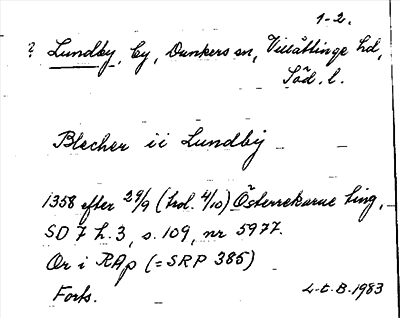 1-2.
? Lundby, by, Dunkers sn, Villåttinge hd,
Söd. l.
Blecher ii Lundby
1358 efter 29/9 (hol. 4/10) Österrekarne ting,
SD 7 h. 3, s. 109, nr 5977.
Or i RAp (= SRP 385)
Forts.
L-t. B. 1983